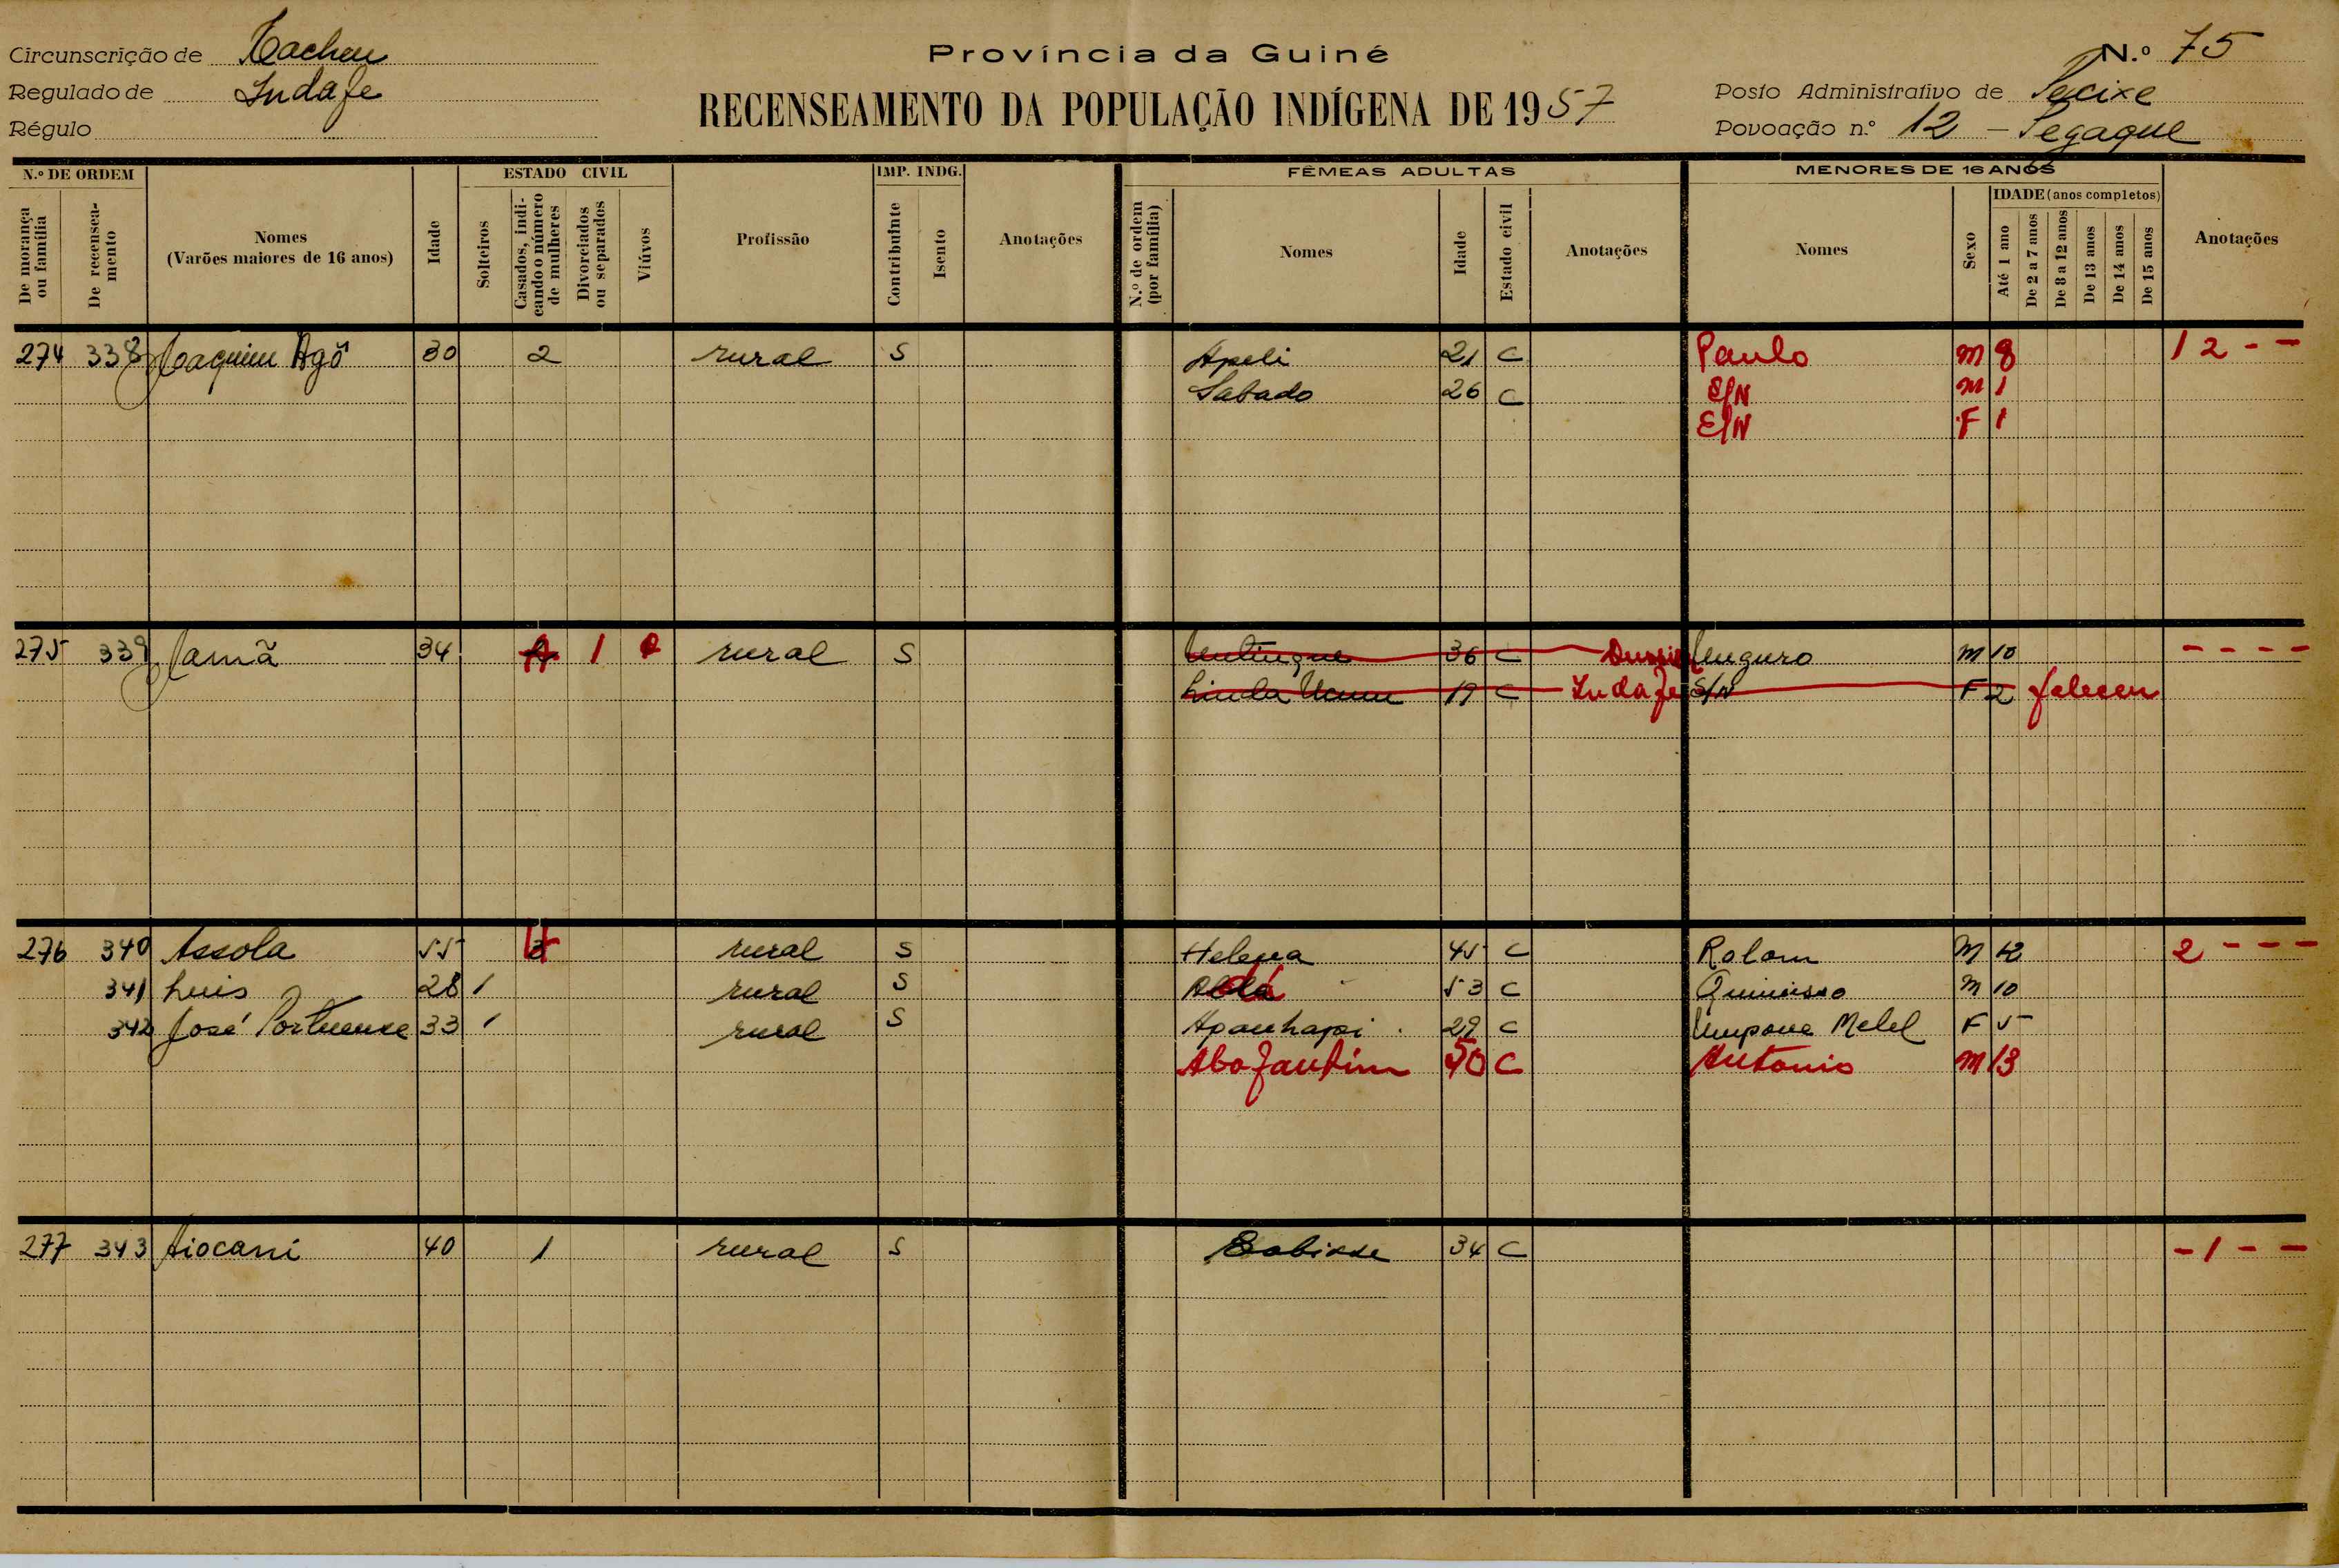 Província da Guiné
RECENSEAMENTO DA POPULAÇÃO INDÍGENA DE 1957
Circunscrição de Cacheu
Regulado de Indafe
Régulo
N.º 75
Posto Administrativo de Pecixe
Povoação n.º 12 - Pegaque
N.º DE ORDEM
De morança ou família
De recenseamento
Nomes (Varões maiores de 16 anos)
Idade
ESTADO CIVIL
Solteiros
Casados, indicando o número de mulheres
Divorciados ou separados
Viúvos
Profissão
IMP. INDG.
Contribuinte
Isento
Anotações
FÊMEAS ADULTAS
N.º de ordem (por família)
Nomes
Idade
Estado civil
Anotações
MENORES DE 16 ANOS
Nomes
Sexo
IDADE (anos completos)
Até 1 ano
De 2 a 7 anos
De 8 a 12 anos
De 13 anos
De 14 anos
De 15 anos
Anotações
274 338 Joaquim Agô 30 2 rural S Apeli 21 C Paulo M 8 1 2 - -
Sabado 26 C S/N M 1
S/N F 1
275 339 Jamã 34 1 rural S 36 C Unguro M 10 - - - -
19 C Indafe S/N F 2 faleceu
276 340 Assola 55 4 rural S Helena 45 C Rolom M 12 2 - - -
341 Luis 28 1 rural S 53 C M 10
342 José Portuense 33 1 rural S Apanhapi 29 C Umpone Melel F 5
Abofantim 50 C Antonio M 13
277 343 Aiocani 40 1 rural S Sabisse 34 C - 1 - -